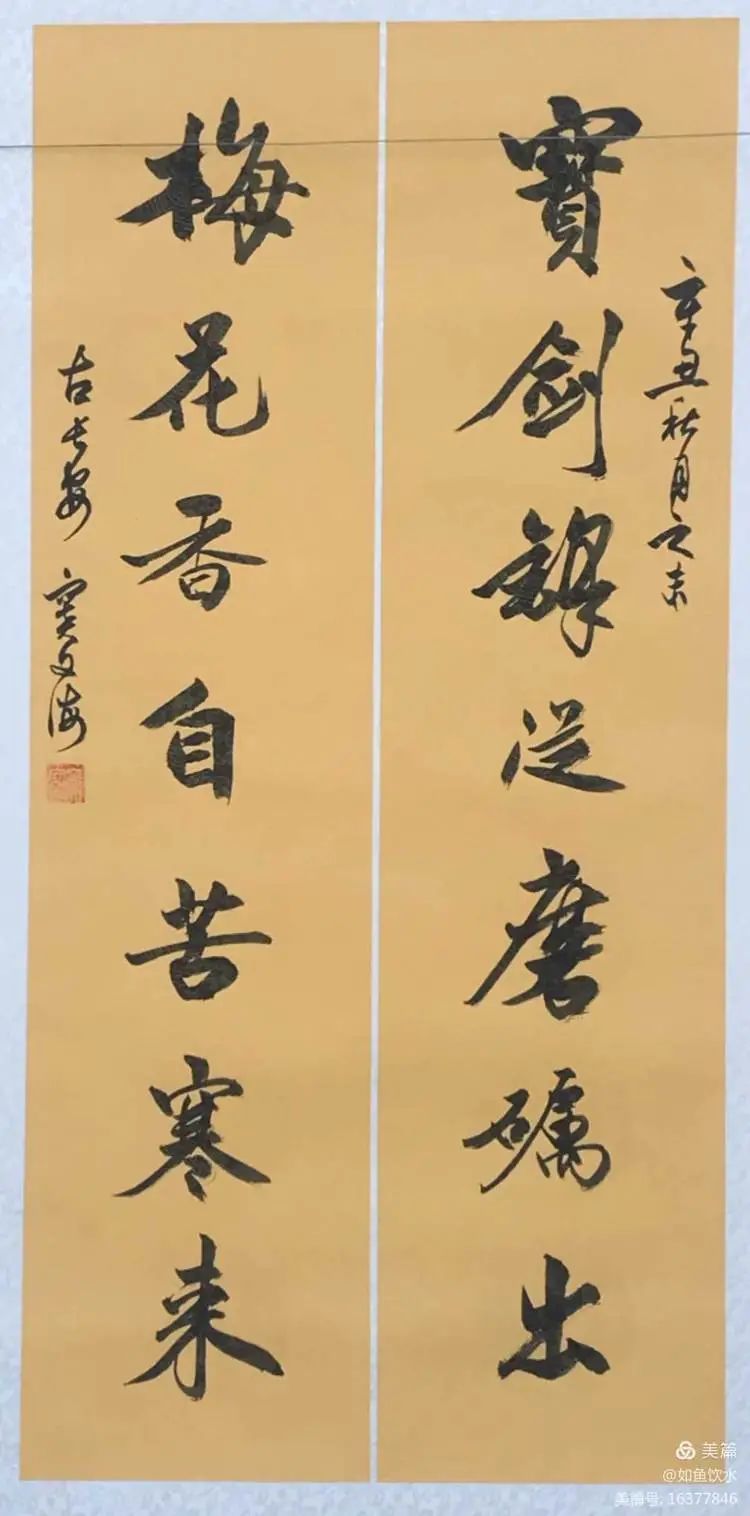 寶劍鋒從磨礪出
辛丑秋月之末
梅花香自苦寒来
古长安 窦文海
美篇
@如鱼饮水
美篇号: 16377846